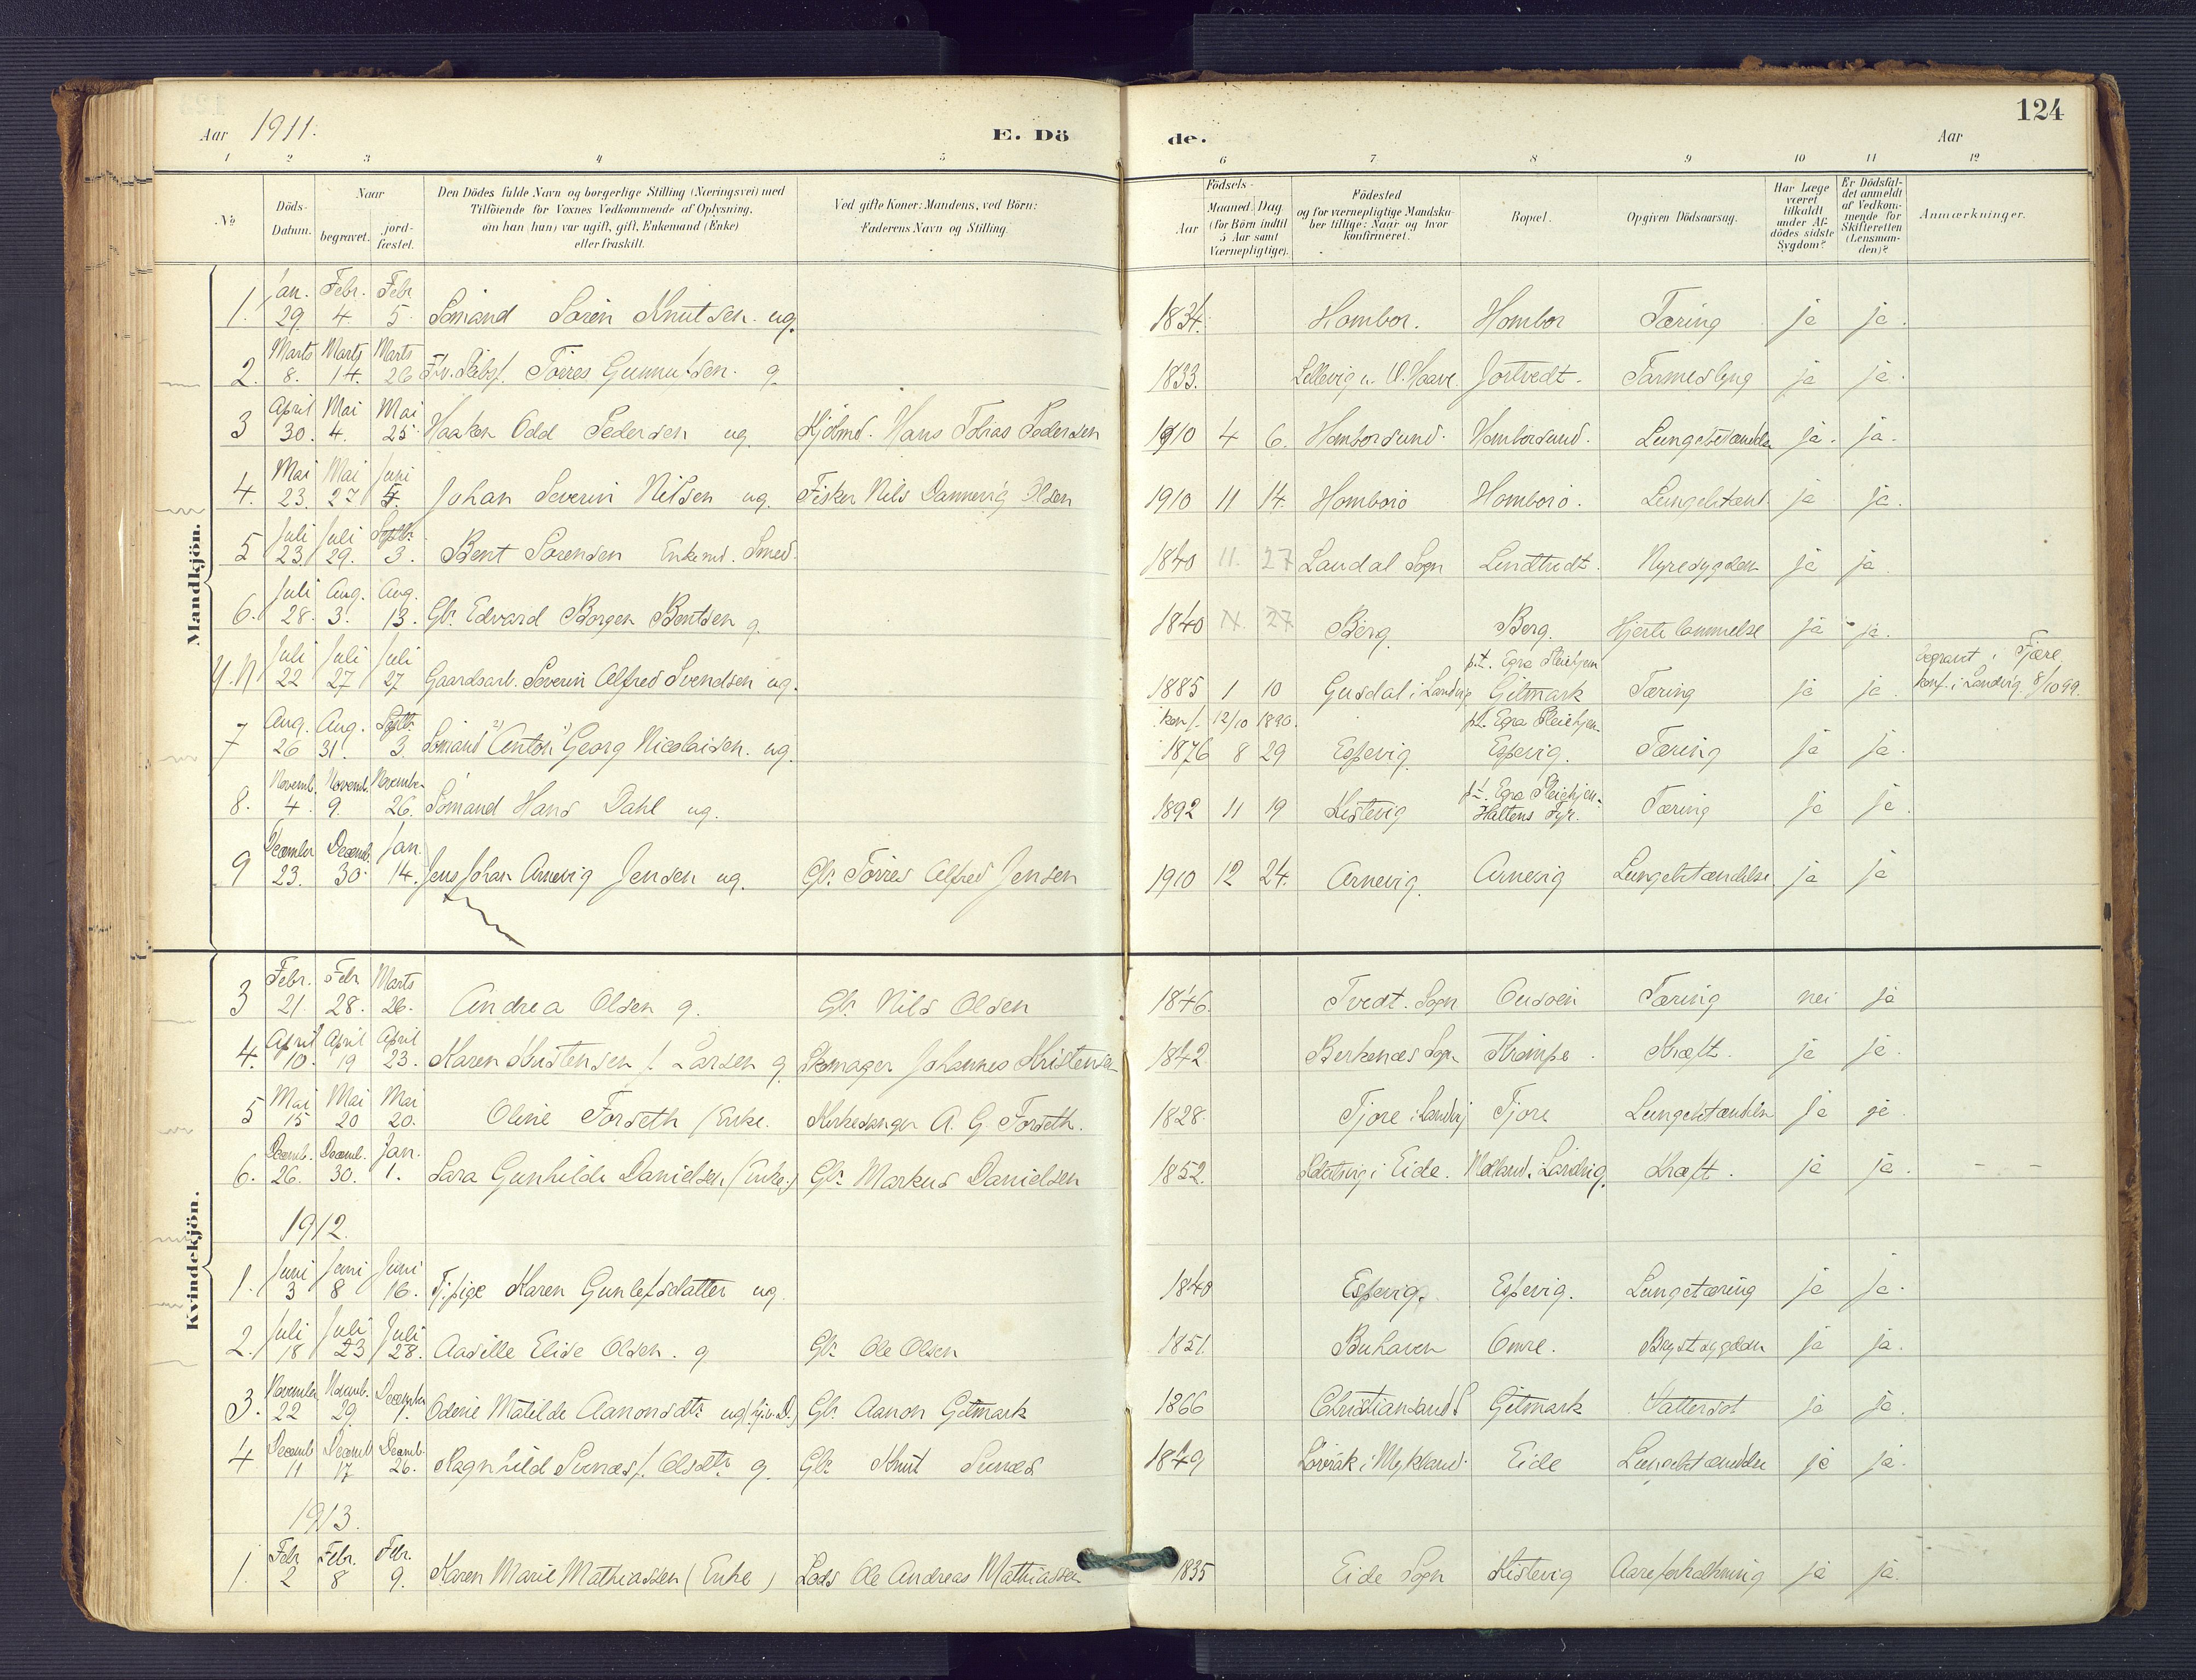 124
Aar 1911.
E. Dö de.
Aar
1 2 3 4 5 6 7 8 9 10 11 12
No
Döds-Datum.
Naar begravet. jordfæstet.
Den Dödes fulde Navn og borgerlige Stilling (Næringsvei) med Tilföiende for Voxnes Vedkommende af Oplysning, om han (hun) var ugift, gift, Enkemand (Enke) eller fraskilt.
Ved gifte Koner: Mandens, ved Börn: Faderens Navn og Stilling.
Födsels-
Aar
Maaned. Dag.
(for Börn indtil 5 Aar samt Værnepligtige).
Födested og for værnepligtige Mandskaber tillige: Naar og hvor konfirmeret.
Bopæl.
Opgiven Dödsaarsag.
Har Læge været tilkaldt under Afdödes sidste Sygdom?
Er Dödsfaldet anmeldt af Vedkommende for Skifteretten (Lensmanden)?
Anmærkninger.
Mandkjön.
1. Jan. 29. Febr. 4. Febr 5. Sömand Sören Knutsen ug. 1834. Hombor. Hombor Tæring ja ja.
2. Marts 8. Marts 14. Marts 26 Törres Gunnufsen. g. 1833. Jortvedt. Tarmeslyng ja ja.
3 April 30. Mai 4. Mai 25. Haaken Odd Pedersen ug. Hans Tobias Pedersen 1910 4 6. Hamborsund. Hamborsund. Lungebetændelse ja. ja.
4. Mai 23. Mai 27 Juni Johan Severin Nilsen ug. Fisker Nils Dannevig Olsen 1910 11 14. Homborö Homborö. Lungebetænd. ja ja.
5 Juli 23. Juli 29. Septbr. 3. Bent Sörensen Enkemd. Smed. 1840 11. 27 Landal Sogn Lindtvedt. Nyresygdom ja ja
6. Juli 28. Aug. 3. Aug. 13. Gbr. Edvard Borgen Bentsen g. 1840 11. 27 Berg. Berg. Hjertelammelse ja ja.
U.N Juli 22 Juli 27 Juli 27 Gaardsarb. Severin Alfred Svendsen ug. 1885 1 10 Gusdal i Landvig p.t. Egra Pleiehjem Gitmark Tæring ja ja. begravet i Fjære. konf. i Landvig 8/10 99.
konf. 12/10 1890.
7 Aug. 26 Aug. 31. Septbr. 3 Sömand 2) Anton 1) Georg Nicolaisen. ug. 1876 8 29 Espevig p.t. Egra Pleiehjem Espevig. Tæring ja ja.
8. Novemb. 4. Novemb. 9. November 26. Sömand Hans Dahl ug. 1892 11 19 Kistevig p.t. Egra Pleiehjem. Haltens Fyr. Tæring ja ja.
9 December 23. Decemb. 30. Jan. 14. Jens Johan Arnevig Jensen ug. Gbr. Törres Alfred Jensen 1910 12 24. Arnevig. Arnevig Lungebetændelse ja ja
Kvindekjön.
3 Febr. 21. Febr 28. Marts 26. Andrea Olsen g. Gbr. Nils Olsen 1846. Tvedt. Sogn Tæring nei ja
4. April 10. April 19 April 23. Karen Kristensen f. Larsen g. Skomager Johannes Kristensen 1842. Berkenæs Sogn Kræft. ja ja.
5 Mai 15 Mai 20 Mai 20. Oline Forseth (Enke. Kirkesanger A. G. Forseth. 1828. Tjore i Landvig Tjore Lungebetændelse ja ja.
6. Decemb. 26. Decemb. 30. Jan. 1. Sara Gunhilde Danielsen (Enke.) Gbr. Markus Danielsen 1852. i Eide. i Landvig. Kræft. ja ja.
1912.
1. Juni 3 Juni 8 Juni 16. Tj.pige Karen Gunlefsdatter ug. 1840 Espevig. Espevig. Lungetæring ja ja.
2. Juli 18 Juli 23 Juli 28. Aasille Elise Olsen. g Gbr. Ole Olsen 1851. Buhaven Omre. Brystsygdom ja ja.
3. November 22 Novemb. 29. December 1. Oderie Matilde Aanonsdtr. ug. Gbr. Aanon Gitmark 1866 Christiansand Gitmark Vattersot ja ja.
4 Decemb 11 Decemb 17 Decemb. 26. Ragnhild Sunæs f. Olsdtr. g. Gbr. Knut Sunæs 1849 i Mykland. Eide Lungebetændelse ja ja.
1913.
1. Febr 2 Febr. 8 Febr. 9. Karen Marie Mathiassen (Enke) Lods Ole Andreas Mathiassen 1835 Eide Sogn Kistevig Aareforkalkning ja ja.